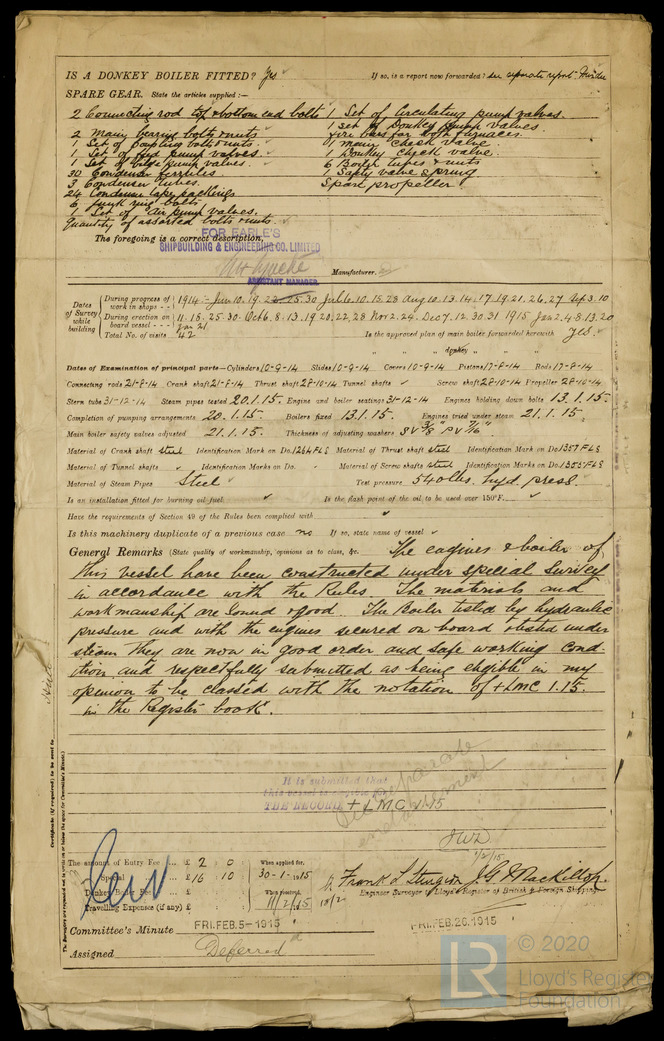 IS A DONKEY BOILER FITTED? Yes If so, is a report now forwarded? see separate report
SPARE GEAR. State the articles supplied:—
2 Connecting rod top & bottom end bolts 1 Set of Circulating pump valves.
2 Main bearing bolts & nuts 1 Set of Donkey pump valves
1 Set of coupling bolts & nuts. fire bars for both furnaces
1 Set of feed pump valves. 1 main check valve
1 Set of bilge pump valves. 1 Donkey check valve.
30 Condenser ferrules 6 Boiler tubes & nuts
3 Condenser tubes. 1 Safety valve spring
24 Condenser tape packings Spare propeller
6 junk ring bolts
1 Set of air pump valves.
Quantity of assorted bolts & nuts.
The foregoing is a correct description,
FOR EARLE'S
SHIPBUILDING & ENGINEERING CO. LIMITED
Manufacturer.
ASSISTANT MANAGER.
Dates of Survey while building
During progress of work in shops - - 1914:- Jun 10. 19. 22. 25. 30 Jul 6. 10. 15. 28 Aug 10. 13. 14. 17. 19. 21. 26. 27 Sep 3. 10
During erection on board vessel - - - 11. 18. 25. 30 Oct 6. 8. 13. 19. 20. 22. 28 Nov 2. 24. Dec 7. 12. 30. 31 1915 Jan 2. 4. 8. 13. 20
Jan 21
Total No. of visits 42 Is the approved plan of main boiler forwarded herewith yes.
" " donkey " " "
Dates of Examination of principal parts—Cylinders 10-9-14 Slides 10-9-14 Covers 10-9-14 Pistons 17-8-14 Rods 17-8-14
Connecting rods 21-8-14 Crank shaft 21-8-14 Thrust shaft 28-10-14 Tunnel shafts ✓ Screw shaft 28-10-14 Propeller 28-10-14
Stern tube 31-12-14 Steam pipes tested 20.1.15. Engine and boiler seatings 31-12-14 Engines holding down bolts 13.1.15.
Completion of pumping arrangements 20.1.15. Boilers fixed 13.1.15. Engines tried under steam 21.1.15.
Main boiler safety valves adjusted 21.1.15. Thickness of adjusting washers S V 3/8" P V 7/16"
Material of Crank shaft steel Identification Mark on Do. 1264 FLS Material of Thrust shaft steel Identification Mark on Do. 1357 FLS
Material of Tunnel shafts ✓ Identification Marks on Do. ✓ Material of Screw shafts steel Identification Marks on Do. 1355 FLS
Material of Steam Pipes Steel Test pressure 540 lbs. hyd. press.
Is an installation fitted for burning oil fuel ✓ Is the flash point of the oil to be used over 150°F. ✓
Have the requirements of Section 49 of the Rules been complied with ✓
Is this machinery duplicate of a previous case no If so, state name of vessel ✓
General Remarks (State quality of workmanship, opinions as to class, &c. The engines & boiler of
this vessel have been constructed under special survey
in accordance with the Rules. The materials and
workmanship are sound & good. The Boiler tested by hydraulic
pressure and with the engines secured on board & tested under
steam they are now in good order and safe working cond-
ition and respectfully submitted as being eligible in my
opinion to be classed with the notation of + LMC 1.15.
in the Register book.
It is submitted that
this vessel is eligible for
THE RECORD + LMC 1.15
See separate
JWD
1/2/15
Certificate (if required) to be sent to
The Surveyors are requested not to write on or below the space for Committee's Minute.
The amount of Entry Fee ... £ 2 : 0 When applied for,
Special ... £ 16 : 10 30-1-1915
Donkey Boiler Fee ... £ When received,
Travelling Expenses (if any) £ 11/2/15
Frank L Sturgeon J. G. Mackillop.
Engineer Surveyor to Lloyd's Register of British & Foreign Shipping
Committee's Minute FRI. FEB. 5-1915 FRI. FEB. 26. 1915
Assigned Deferred
LR © 2020
Lloyd's Register
Foundation